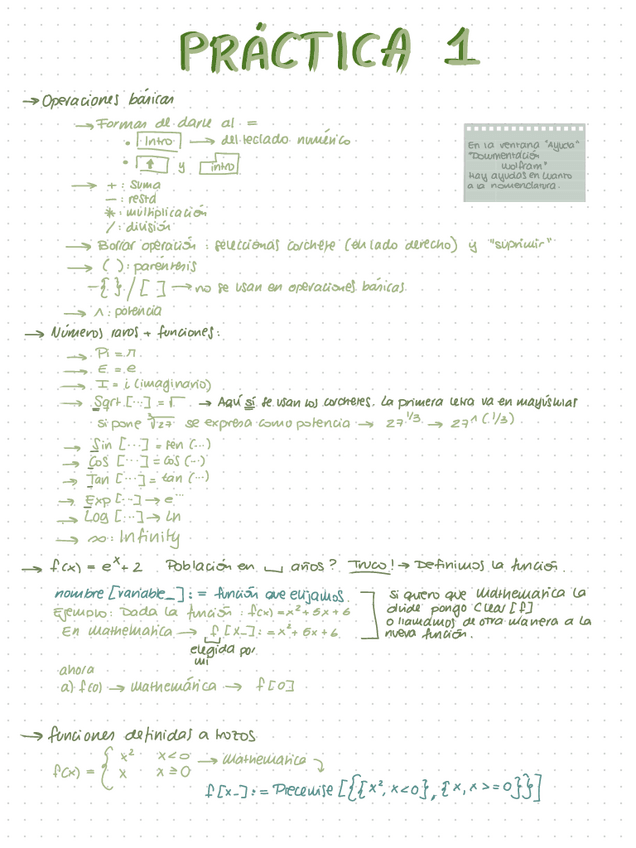 PRÁCTICA 1
→ Operaciones básicas
→ Formas de darle al =
• Intro → del teclado numérico
• ↑ y intro
En la ventana "Ayuda"
"Documentación
Wolfram"
Hay ayudas en cuanto
a la nomenclatura.
→ + : suma
− : resta
* : multiplicación
/ : división
→ Borrar operación : seleccionas corchete (en lado derecho) y "suprimir"
→ ( ) : paréntesis
− { } / [ ] → no se usan en operaciones básicas.
→ ∧ : potencia
→ Números raros + funciones :
→ Pi = π
→ E = e
→ I = i (imaginario)
→ Sqrt [...] = √ → Aquí sí se usan los corchetes. La primera letra va en mayúsculas
si pone ∛27 se expresa como potencia → 27^1/3 → 27 ^ (1/3)
→ Sin [...] = sen (...)
→ Cos [...] = cos (...)
→ Tan [...] = tan (...)
→ Exp [...] → e^...
→ Log [...] → Ln
→ ∞ : Infinity
→ f(x) = e^x + 2 Población en ␣ años? Truco! → Definimos la función.
nombre [variable_] : = función que elijamos.
Ejemplo: Dada la función : f(x) = x² + 5x + 6
En mathematica → f [x_] : = x² + 5x + 6
elegida por
mí
si quiero que Mathematica la
olvide pongo Clear [f]
o llamamos de otra manera a la
nueva función.
ahora
a) f(0) → mathemática → f [0]
→ funciones definidas a trozos
f(x) = { x² x<0 → mathematica
x x≥0
f [x_] : = Piecewise [{{x², x<0}, {x, x>=0}}]